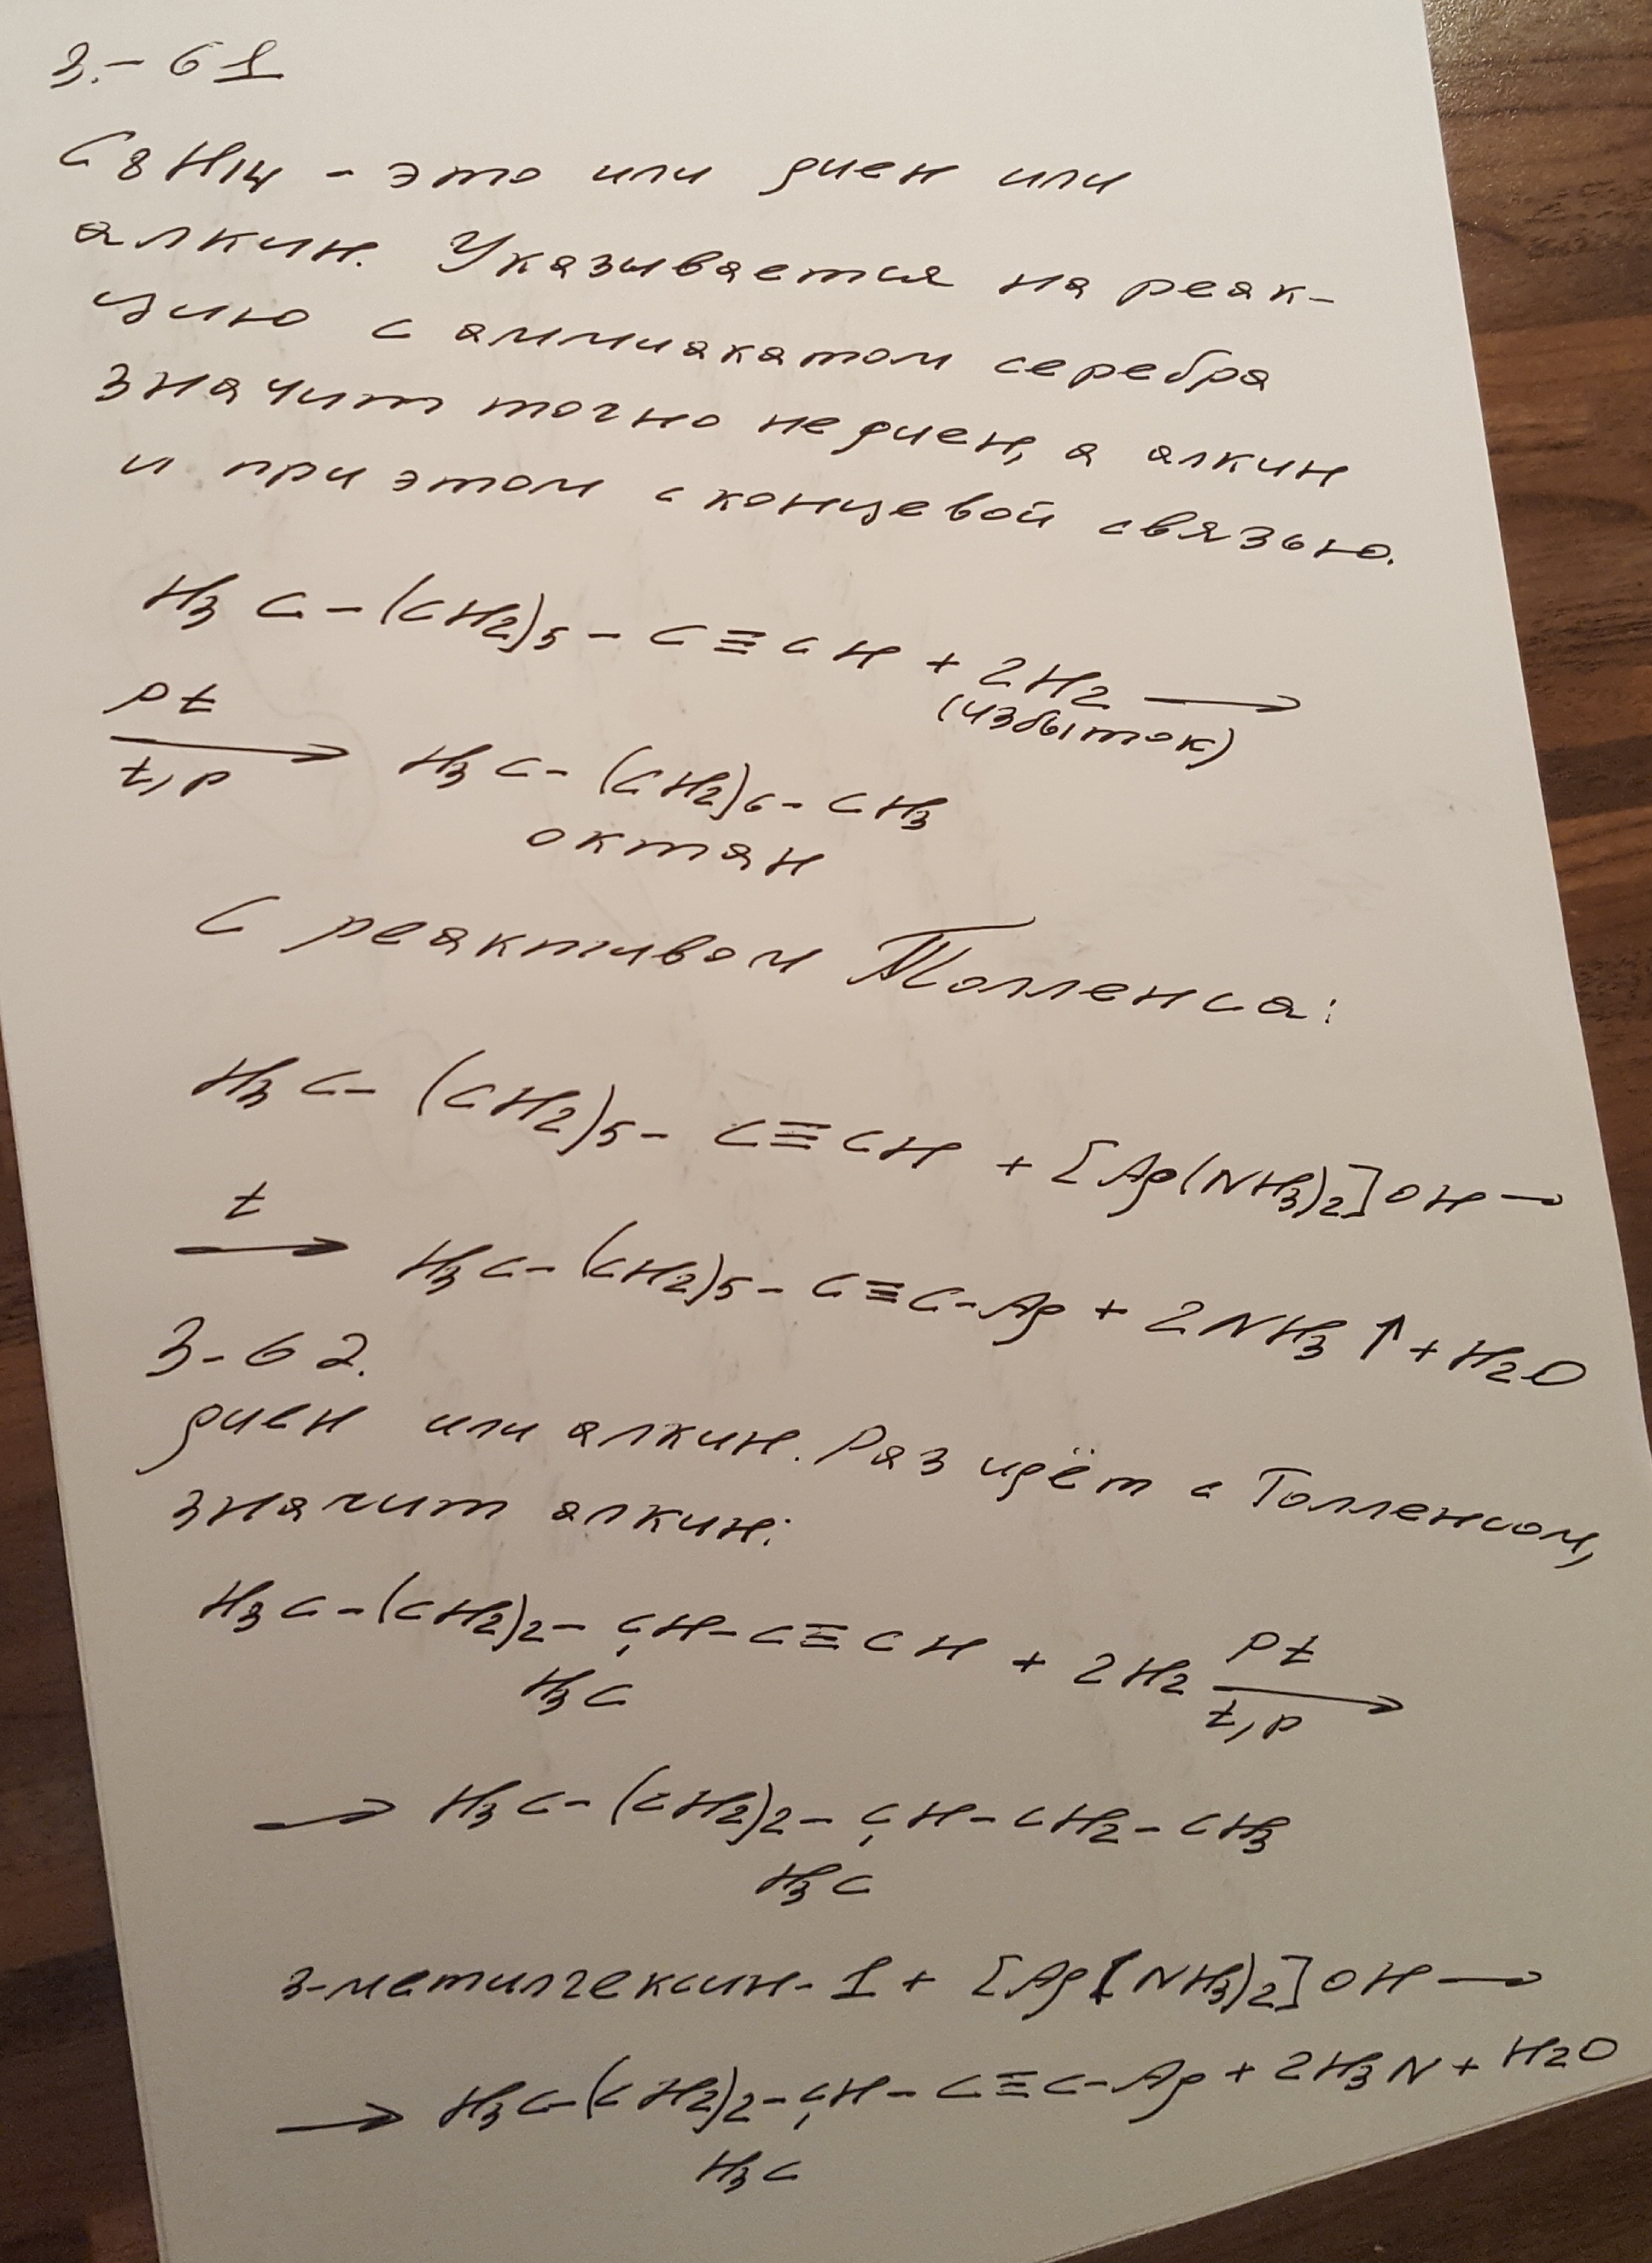 3.-61
C8H14 - это или диен или
алкин. Указывается на реак-
цию с аммиакатом серебра
значит точно не диен, а алкин
и при этом с концевой связью.
H3C-(CH2)5-C≡CH + 2H2 ⟶
(избыток)
Pt
⟶ H3C-(CH2)6-CH3
t, p
октан
С реактивом Толленса:
H3C-(CH2)5-C≡CH + [Ag(NH3)2]OH ⟶
t
⟶ H3C-(CH2)5-C≡C-Ag + 2NH3↑ + H2O
3-62.
диен или алкин. Раз идёт с Толленсом,
значит алкин:
H3C-(CH2)2-CH-C≡CH + 2H2 Pt ⟶ t, p
H3C
⟶ H3C-(CH2)2-CH-CH2-CH3
H3C
3-метилгексин-1 + [Ag(NH3)2]OH ⟶
⟶ H3C-(CH2)2-CH-C≡C-Ag + 2H3N + H2O
H3C